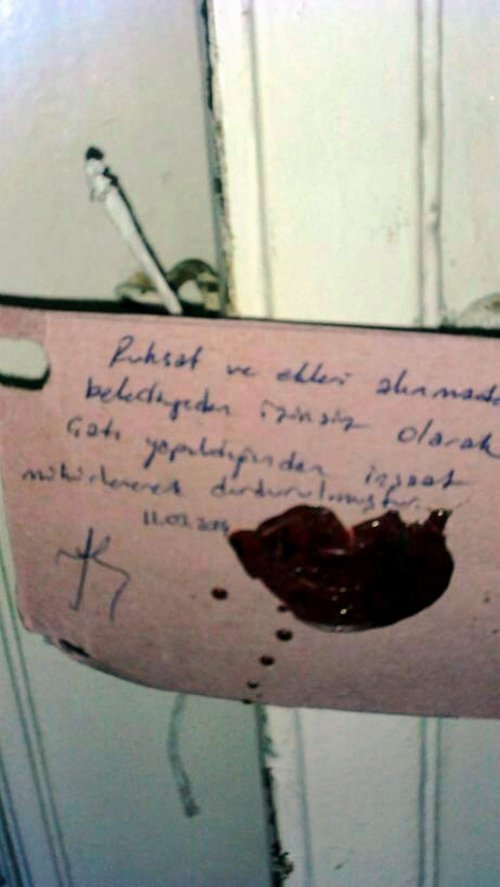 Ruhsat ve ekleri alınmada
belediyeden izinsiz olarak
Çatı yapıldığından inşaat
mühürlenerek durdurulmuştur.
11.03.